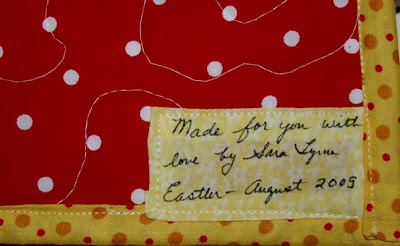 Made for you with
love by Sara Lynn
Eastler - August 2009